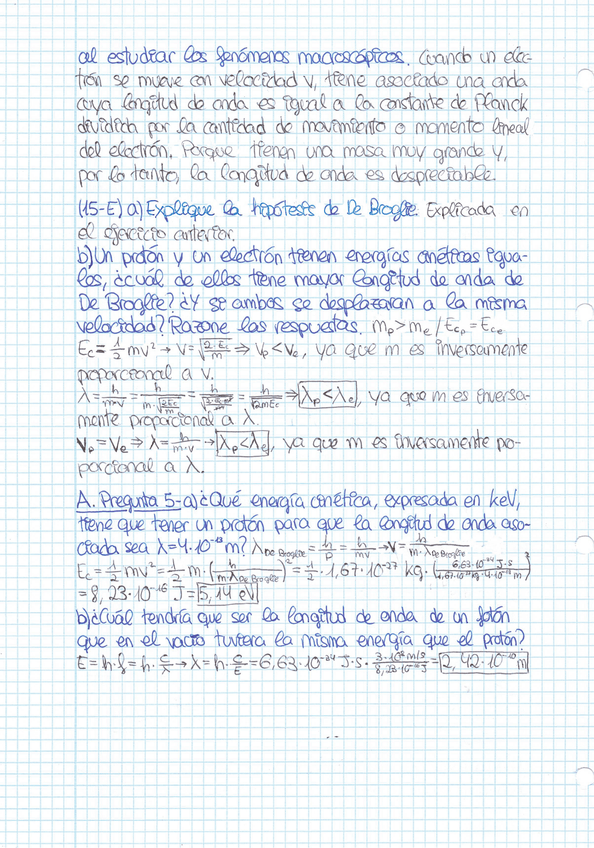 al estudiar los fenómenos macroscópicos. Cuando un elec-
trón se mueve con velocidad v, tiene asociado una onda
cuya longitud de onda es igual a la constante de Planck
dividida por la cantidad de movimiento o momento lineal
del electrón. Porque tienen una masa muy grande y,
por lo tanto, la longitud de onda es despreciable.
(15-E) a) Explique la hipótesis de De Broglie. Explicada en
el ejercicio anterior.
b) Un protón y un electrón tienen energías cinéticas igua-
les, ¿cuál de ellos tiene mayor longitud de onda de
De Broglie? ¿Y si ambos se desplazaran a la misma
velocidad? Razone las respuestas. mp > me / Ecp = Ece
Ec = 1/2 mv² → v = √(2·Ec/m) ⇒ Vp < Ve, ya que m es inversamente
proporcional a v.
λ = h/(m·v) = h/(m·√(2Ec/m)) = h/√(2·Ec·m²/m) = h/√(2mEc) ⇒ λp < λe, ya que m es inversa-
mente proporcional a λ.
Vp = Ve ⇒ λ = h/(m·v) → λp < λe, ya que m es inversamente pro-
porcional a λ.
A. Pregunta 5- a) ¿Qué energía cinética, expresada en keV,
tiene que tener un protón para que la longitud de onda aso-
ciada sea λ = 4·10⁻¹³ m? λ De Broglie = h/p = h/(mv) → v = h/(m·λ De Broglie)
Ec = 1/2 mv² = 1/2 m·(h/(m·λ De Broglie))² = 1/2 · 1,67·10⁻²⁷ kg·(6,63·10⁻³⁴ J·s/(1,67·10⁻²⁷ kg·4·10⁻¹³ m))²
= 8,23·10⁻¹⁶ J = 5,14 eV
b) ¿Cuál tendría que ser la longitud de onda de un fotón
que en el vacío tuviera la misma energía que el protón?
E = h·f = h·c/λ → λ = h·c/E = 6,63·10⁻³⁴ J·s · (3·10⁸ m/s)/(8,23·10⁻¹⁶ J) = 2,42·10⁻¹⁰ m